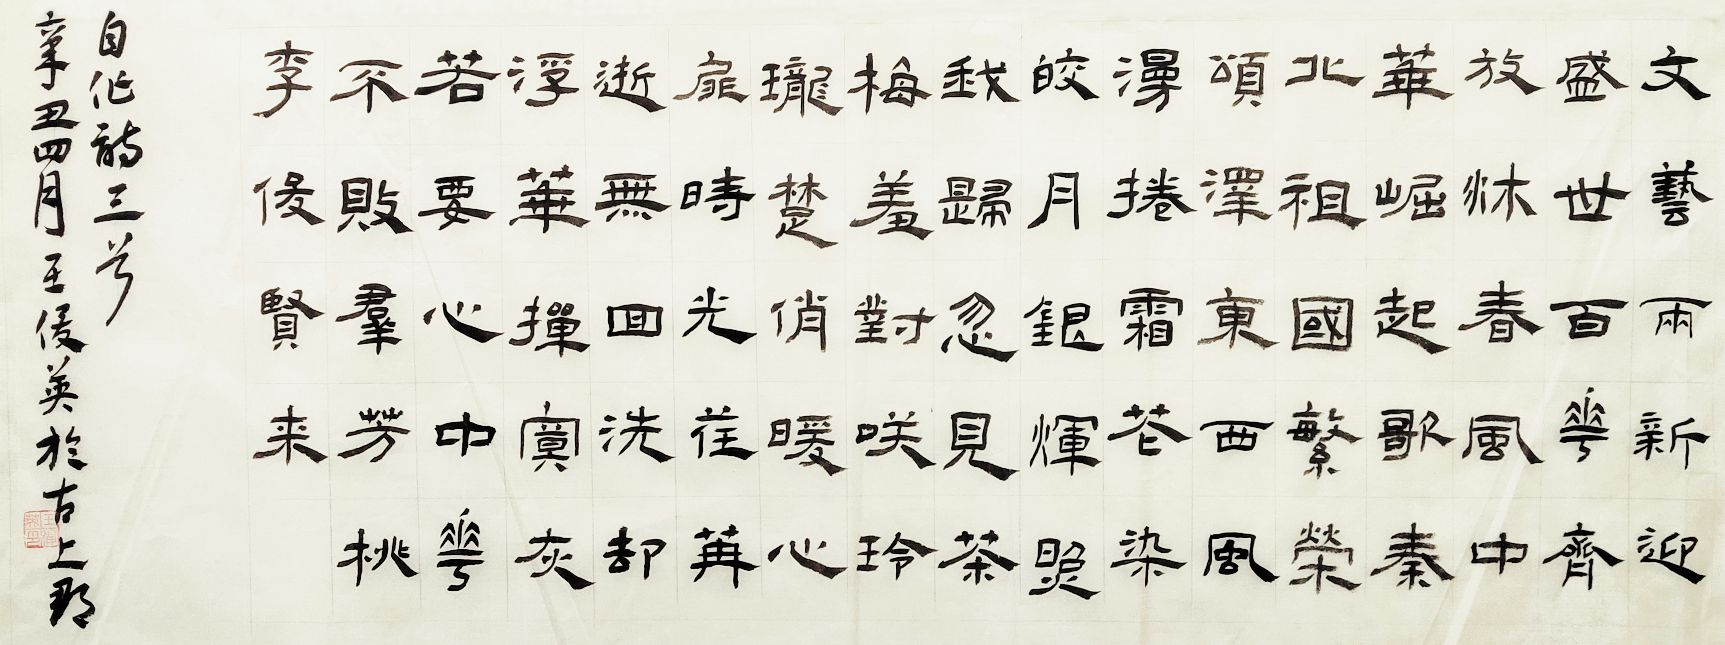 文藝兩新迎
盛世百華齊
放沐春風中
華崛起歌秦
北祖國繁榮
頌澤東西風
漫捲霜花染
皎月銀輝照
我歸忽見茶
梅羞對咲玲
瓏楚俏暖心
扉時光荏苒
逝無回洗却
浮華撣寞灰
若要心中華
不敗羣芳桃
李後賢来
自作詩三首
辛丑四月王俊英於古上郡